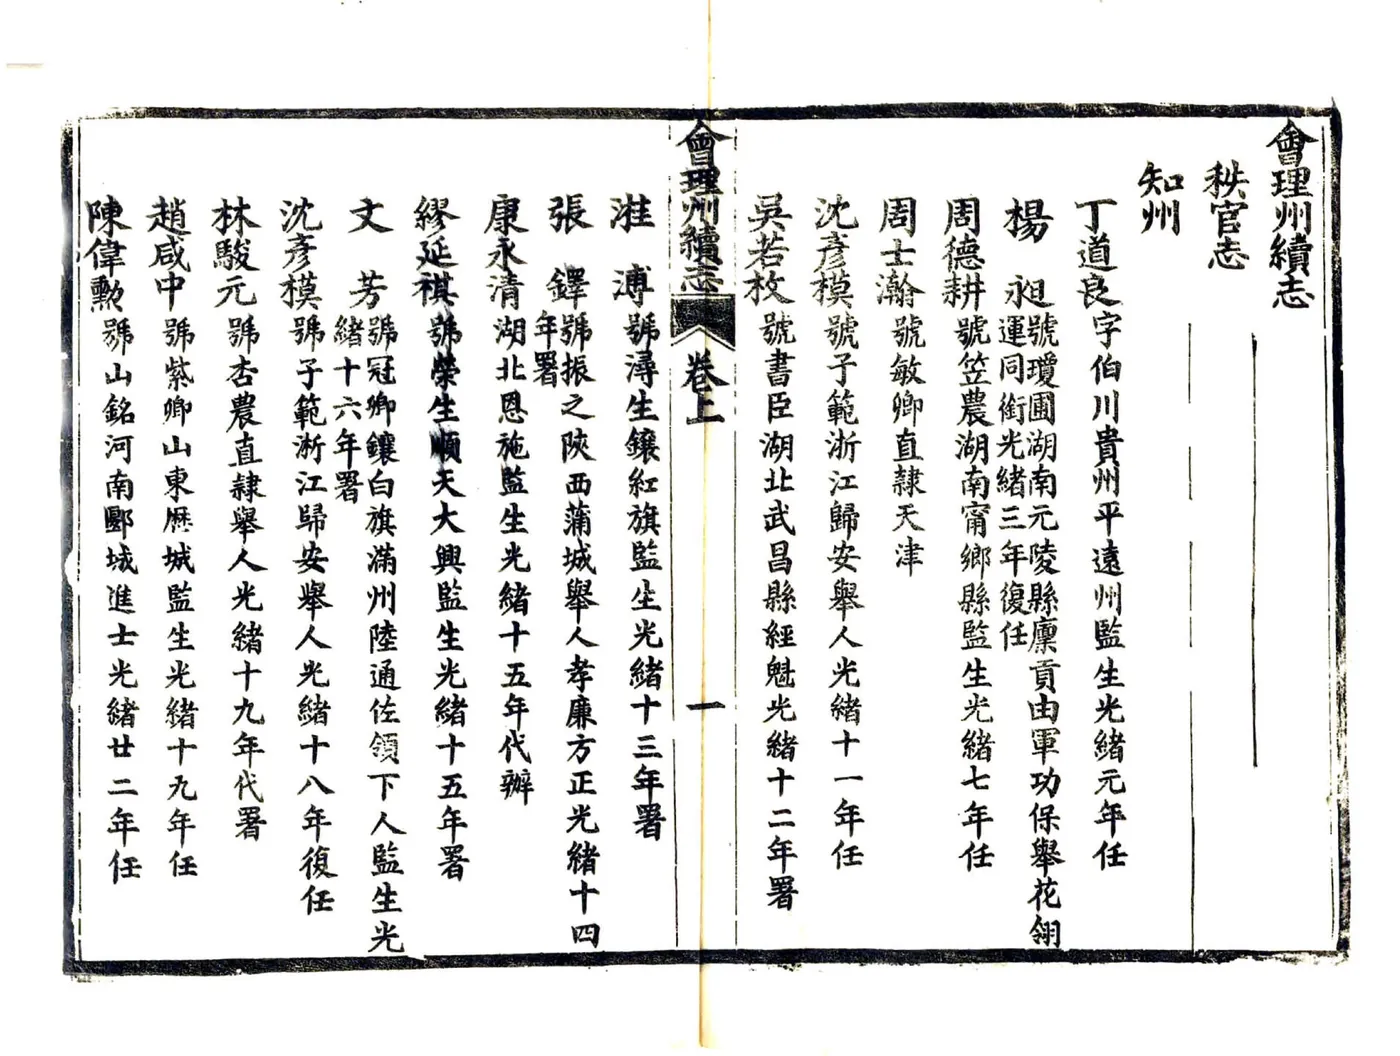 會理州續志
秩官志
知州
丁道良字伯川貴州平遠州監生光緒元年任
楊 昶號瓊圃湖南元陵縣廩貢由軍功保舉花翎
運同銜光緒三年復任
周德耕號笠農湖南甯鄉縣監生光緒七年任
周士瀚號敏卿直隸天津
沈彥模號子範浙江歸安舉人光緒十一年任
吳若枚號書臣湖北武昌縣經魁光緒十二年署
會理州續志 卷上 一
溥號潯生鑲紅旗監生光緒十三年署
張 鐸號振之陝西蒲城舉人孝廉方正光緒十四
年署
康永清湖北恩施監生光緒十五年代辦
繆延祺號榮生順天大興監生光緒十五年署
文 芳號冠卿鑲白旗滿州陸通佐領下人監生光
緒十六年署
沈彥模號子範浙江歸安舉人光緒十八年復任
林駿元號杏農直隸舉人光緒十九年代署
趙咸中號紫卿山東歷城監生光緒十九年任
陳偉勲號山銘河南郾城進士光緒廿二年任